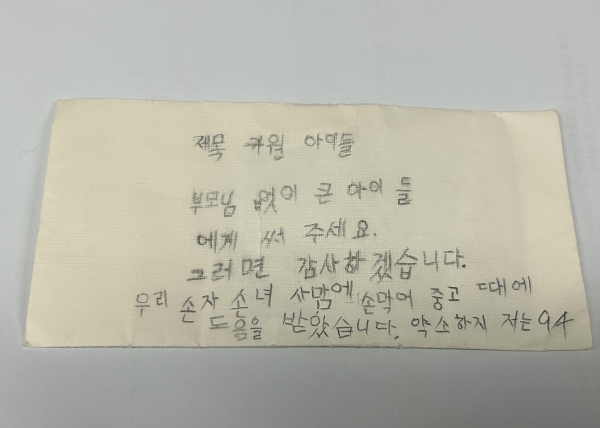 제목 카원 아이들
부모님 없이 큰 아이들
에게 써 주세요.
그러면 감사하겠습니다.
우리 손자 손녀 사맘에 손막어 중고 때에
도음을 받았습니다. 약소하지 저는 94